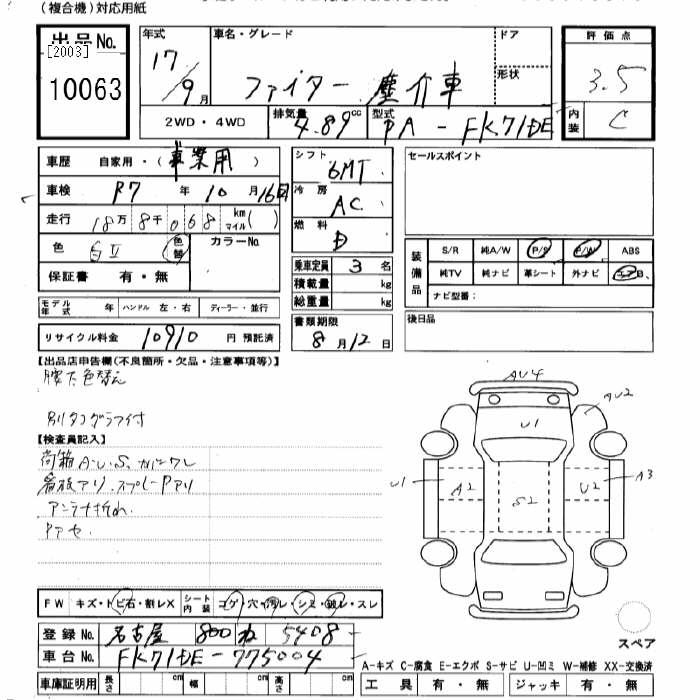 (複合機)対応用紙
出品No.
[2003]
10063
年式 17/9月
車名・グレード ファイター 塵介車
ドア
形状
評価点 3.5
内装 C
2WD・4WD
排気量 4.89cc
型式 PA-FK71DE
車歴 自家用・(事業用)
車検 R7年10月16日
走行 18万8千068km マイル( )
色 白Ⅱ 色替
カラーNo.
保証書 有・無
シフト 6MT
冷房 AC
燃料 D
乗車定員 3名
積載量 kg
総重量 kg
書類期限 8月12日
セールスポイント
装備品
S/R 純A/W P/S P/W ABS
純TV 純ナビ 革シート 外ナビ エアB.
ナビ型番:
後日品
モデル年式 年 ハンドル 左・右 ディーラー・並行
リサイクル料金 10910 円 預託済
【出品店申告欄(不良箇所・欠品・注意事項等)】
腰下色替え
別タコグラフ付
【検査員記入】
荷箱A.U.S.
看板アリ.スプレーPアリ
アンテナ折れ
Pアセ
AU4
AU2
U1
U1
A2
S2
U2
A3
FW キズ・トビ石・割レX
シート内装 コゲ・穴・汚レ・シミ・破レ・スレ
登録No. 名古屋 800 ね 5408
車台No. FK71DE-775004
スペア
A-キズ C-腐食 E-エクボ S-サビ U-凹ミ W-補修 XX-交換済
車庫証明用 長さ cm 幅 cm 高さ cm
工具 有・無 ジャッキ 有・無